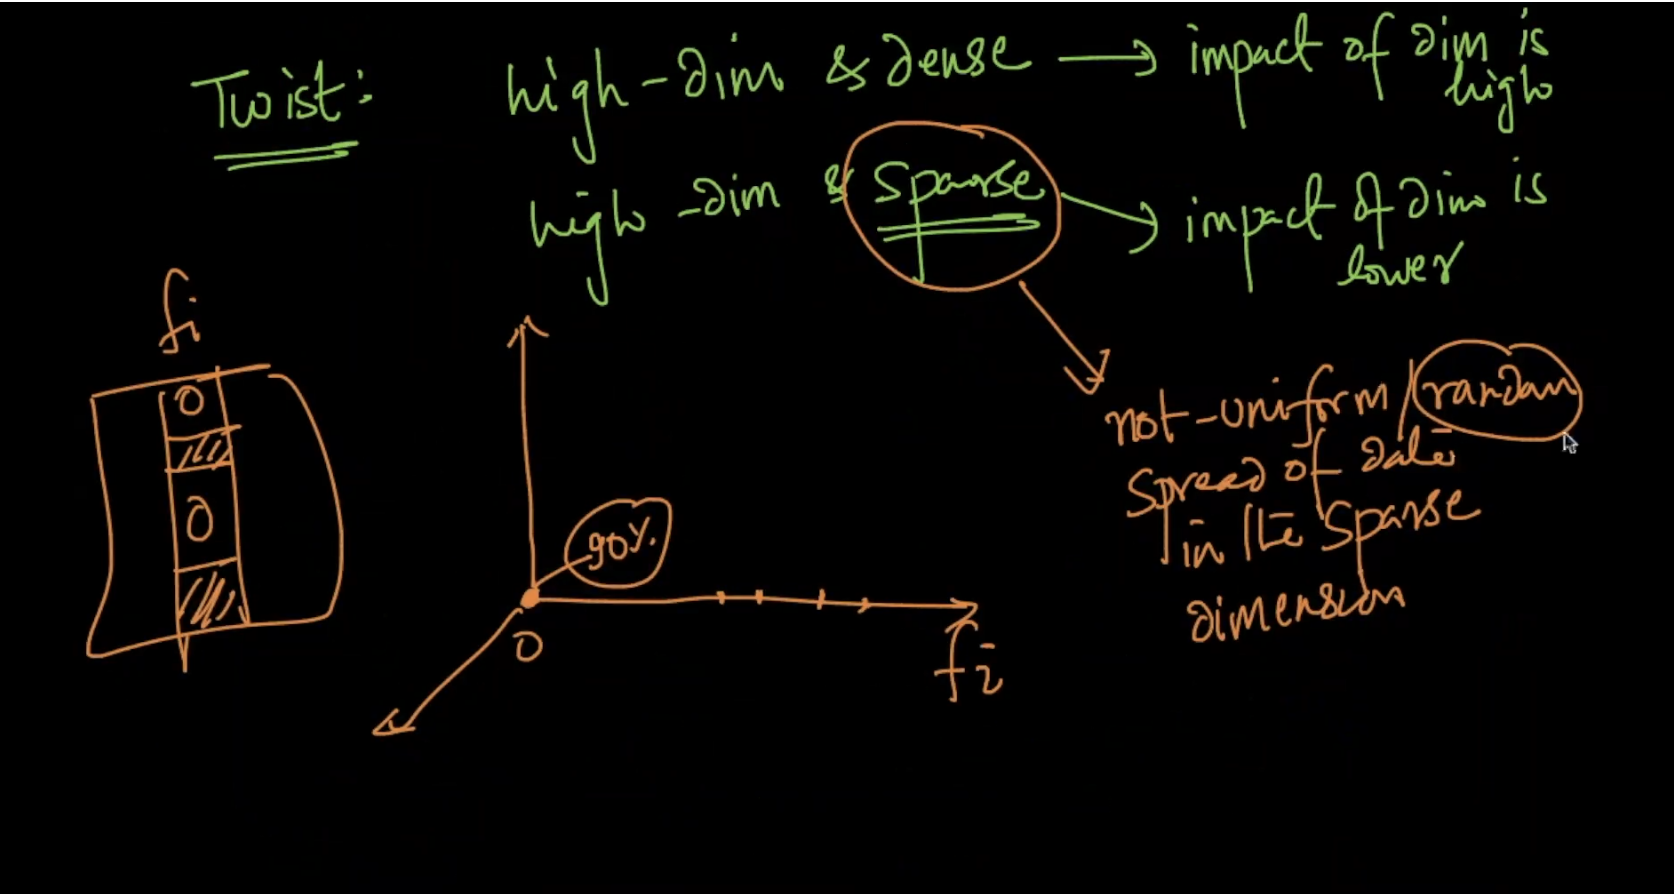 Twist: high-dim & dense → impact of dim is high
high-dim & sparse → impact of dim is lower
fi
0
0
90%.
0
fi
not-uniform/random
spread of data
in the sparse
dimension